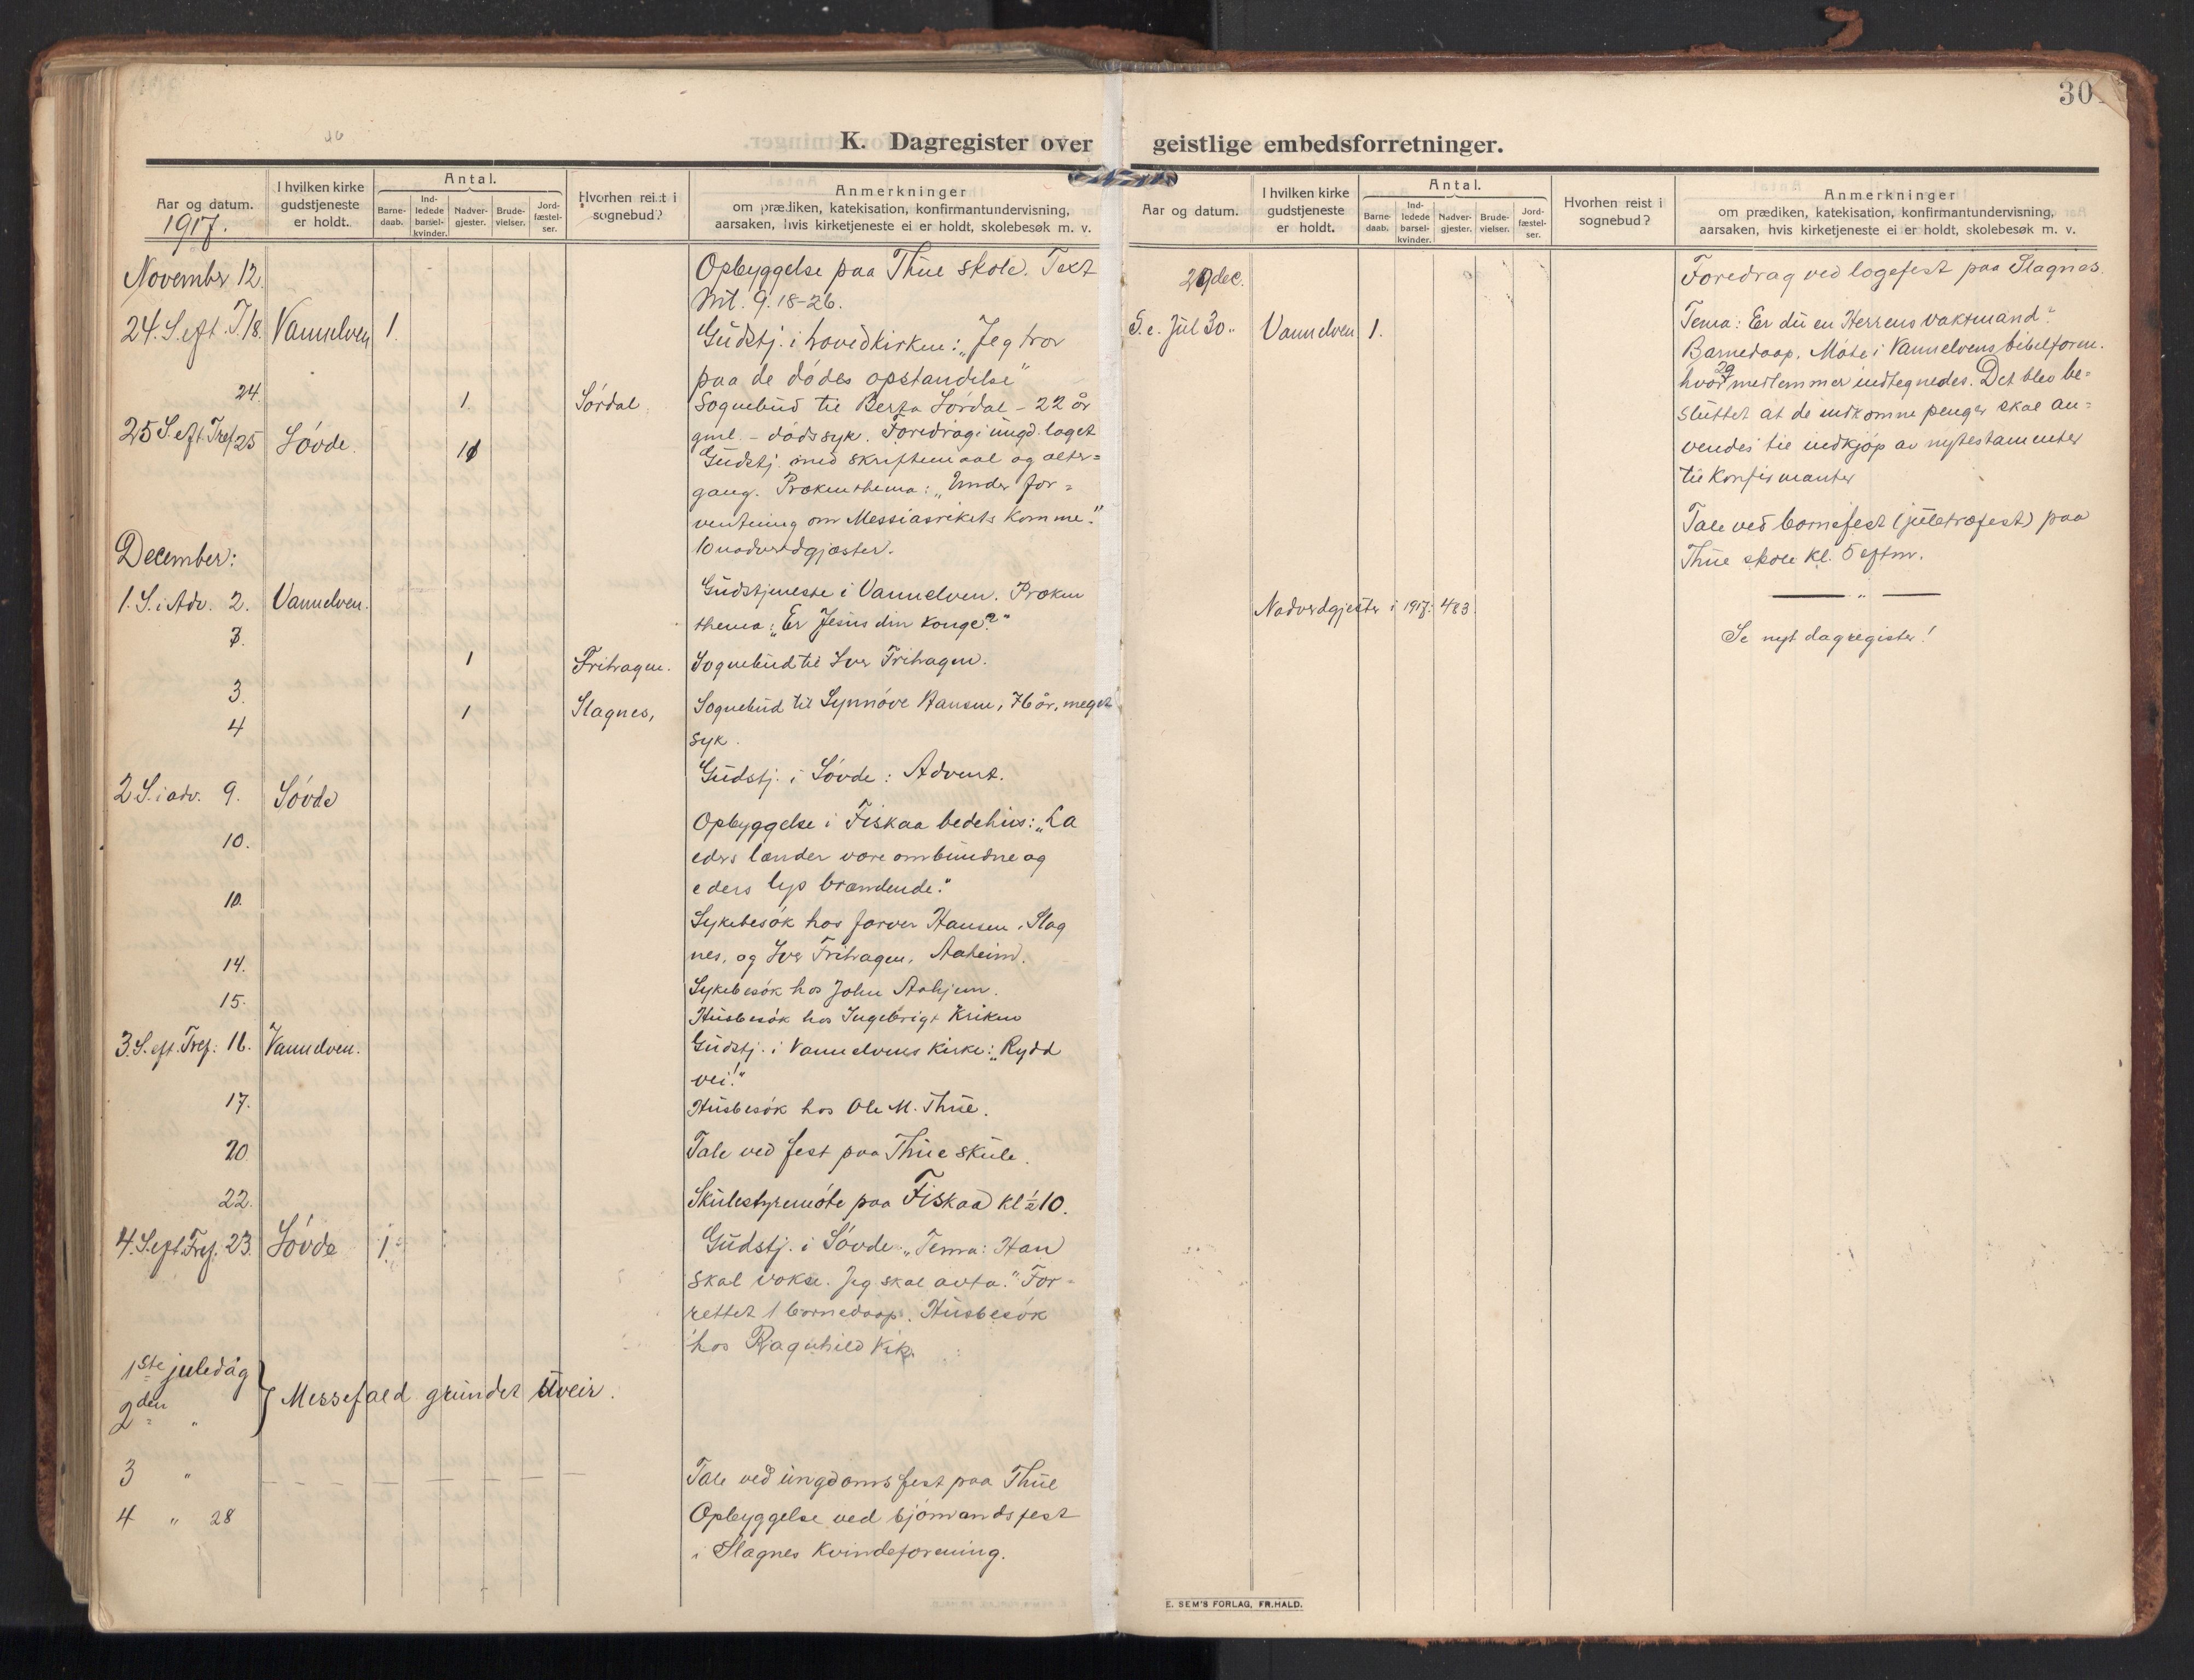 30
K. Dagregister over geistlige embedsforretninger.
Aar og datum.
1917.
I hvilken kirke gudstjeneste er holdt.
Antal.
Barne-daab.
Ind-ledede barsel-kvinder.
Nadver-gjester.
Brude-vielser.
Jord-fæstel-ser.
Hvorhen reist i sognebud?
Anmerkninger
om prædiken, katekisation, konfirmantundervisning,
aarsaken, hvis kirketjeneste ei er holdt, skolebesøk m. v.
November 12. Opbyggelse paa Thue skole. Text
Mt. 9. 18-26.
24. S. eft. T. 18. Vannelven 1. Gudstj. i hovedkirken: „Jeg tror
paa de dødes opstandelse"
24. 1. Sørdal. Sognebud til Berta Sørdal - 22 år
gml. - dødssyk. Foredrag i ungd. laget
25 S. eft. Tref. 25 Søvde. 10 Gudstj. med skriftemaal og alter=
gang. Prækenthema: „Under for=
ventning om Messiasrikets komme."
10 nadverdgjæster.
December:
1. S. i Adv. 2. Vannelven. Gudstjeneste i Vannelven. Præken
thema: „Er Jesus din konge?"
3. 1 Fritvagen. Sognebud til Iver Fritvagen.
3. 1 Slagnes, Sognebud til Synnøve Hansen, 76 år, meget
4 syk.
2 S. i adv. 9. Søvde Gudstj. i Søvde: Advent.
10. Opbyggelse i Fiskaa bedehus: „La
eders lænder være ombundne og
eders lys brændende."
10. Sykebesøk hos farver Hansen, Slag
nes, og Iver Fritvagen, Aaheim.
14. Sykebesøk hos John Aahjem.
15. Husbesøk hos Ingebrigt Kriken
3. S. eft. Tref. 16. Vannelven. Gudstj. i Vannelvens kirke: „Rydd
vei!"
17. Husbesøk hos Ole M. Thue.
20 Tale ved fest paa Thue skule.
22. Skulestyremøte paa Fiskaa kl ½ 10.
4. S. eft. Tref. 23. Søvde 1. Gudstj. i Søvde „Tema: Han
skal vokse. Jeg skal avta." For-
rettet 1 barnedaap. Husbesøk
hos Ragnhild Vik.
1ste juledag
2den " } Messefald grundet uveir.
3 " Tale ved ungdomsfest paa Thue
4 " 28 Opbyggelse ved sjømandsfest
i Slagnes Kvindeforening.
Aar og datum.
I hvilken kirke gudstjeneste er holdt.
Antal.
Barne-daab.
Ind-ledede barsel-kvinder.
Nadver-gjester.
Brude-vielser.
Jord-fæstel-ser.
Hvorhen reist i sognebud?
Anmerkninger
om prædiken, katekisation, konfirmantundervisning,
aarsaken, hvis kirketjeneste ei er holdt, skolebesøk m. v.
29 dec. Foredrag ved logefest paa Slagnes.
Tema: Er du en Herrens vaktmand?
S. e. Jul 30. Vannelven 1. Barnedaap. Møte i Vannelvens bibelforen.
hvor 29 medlemmer indtegnedes. Det blev be=
sluttet at de indkomne penger skal an=
vendes til indkjøp av nytestamenter
til konfirmanter
Tale ved barnefest (juletræfest) paa
Thue skole kl. 5 eftm.
"
Nadverdgjester i 1917: 483
Se nyt dagregister!
E. SEM'S FORLAG, FR.HALD.